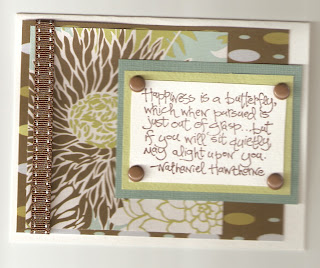 Happiness is a butterfly,
which when pursued is
just out of grasp...but
if you will sit quietly,
may alight upon you.
-Nathaniel Hawthorne